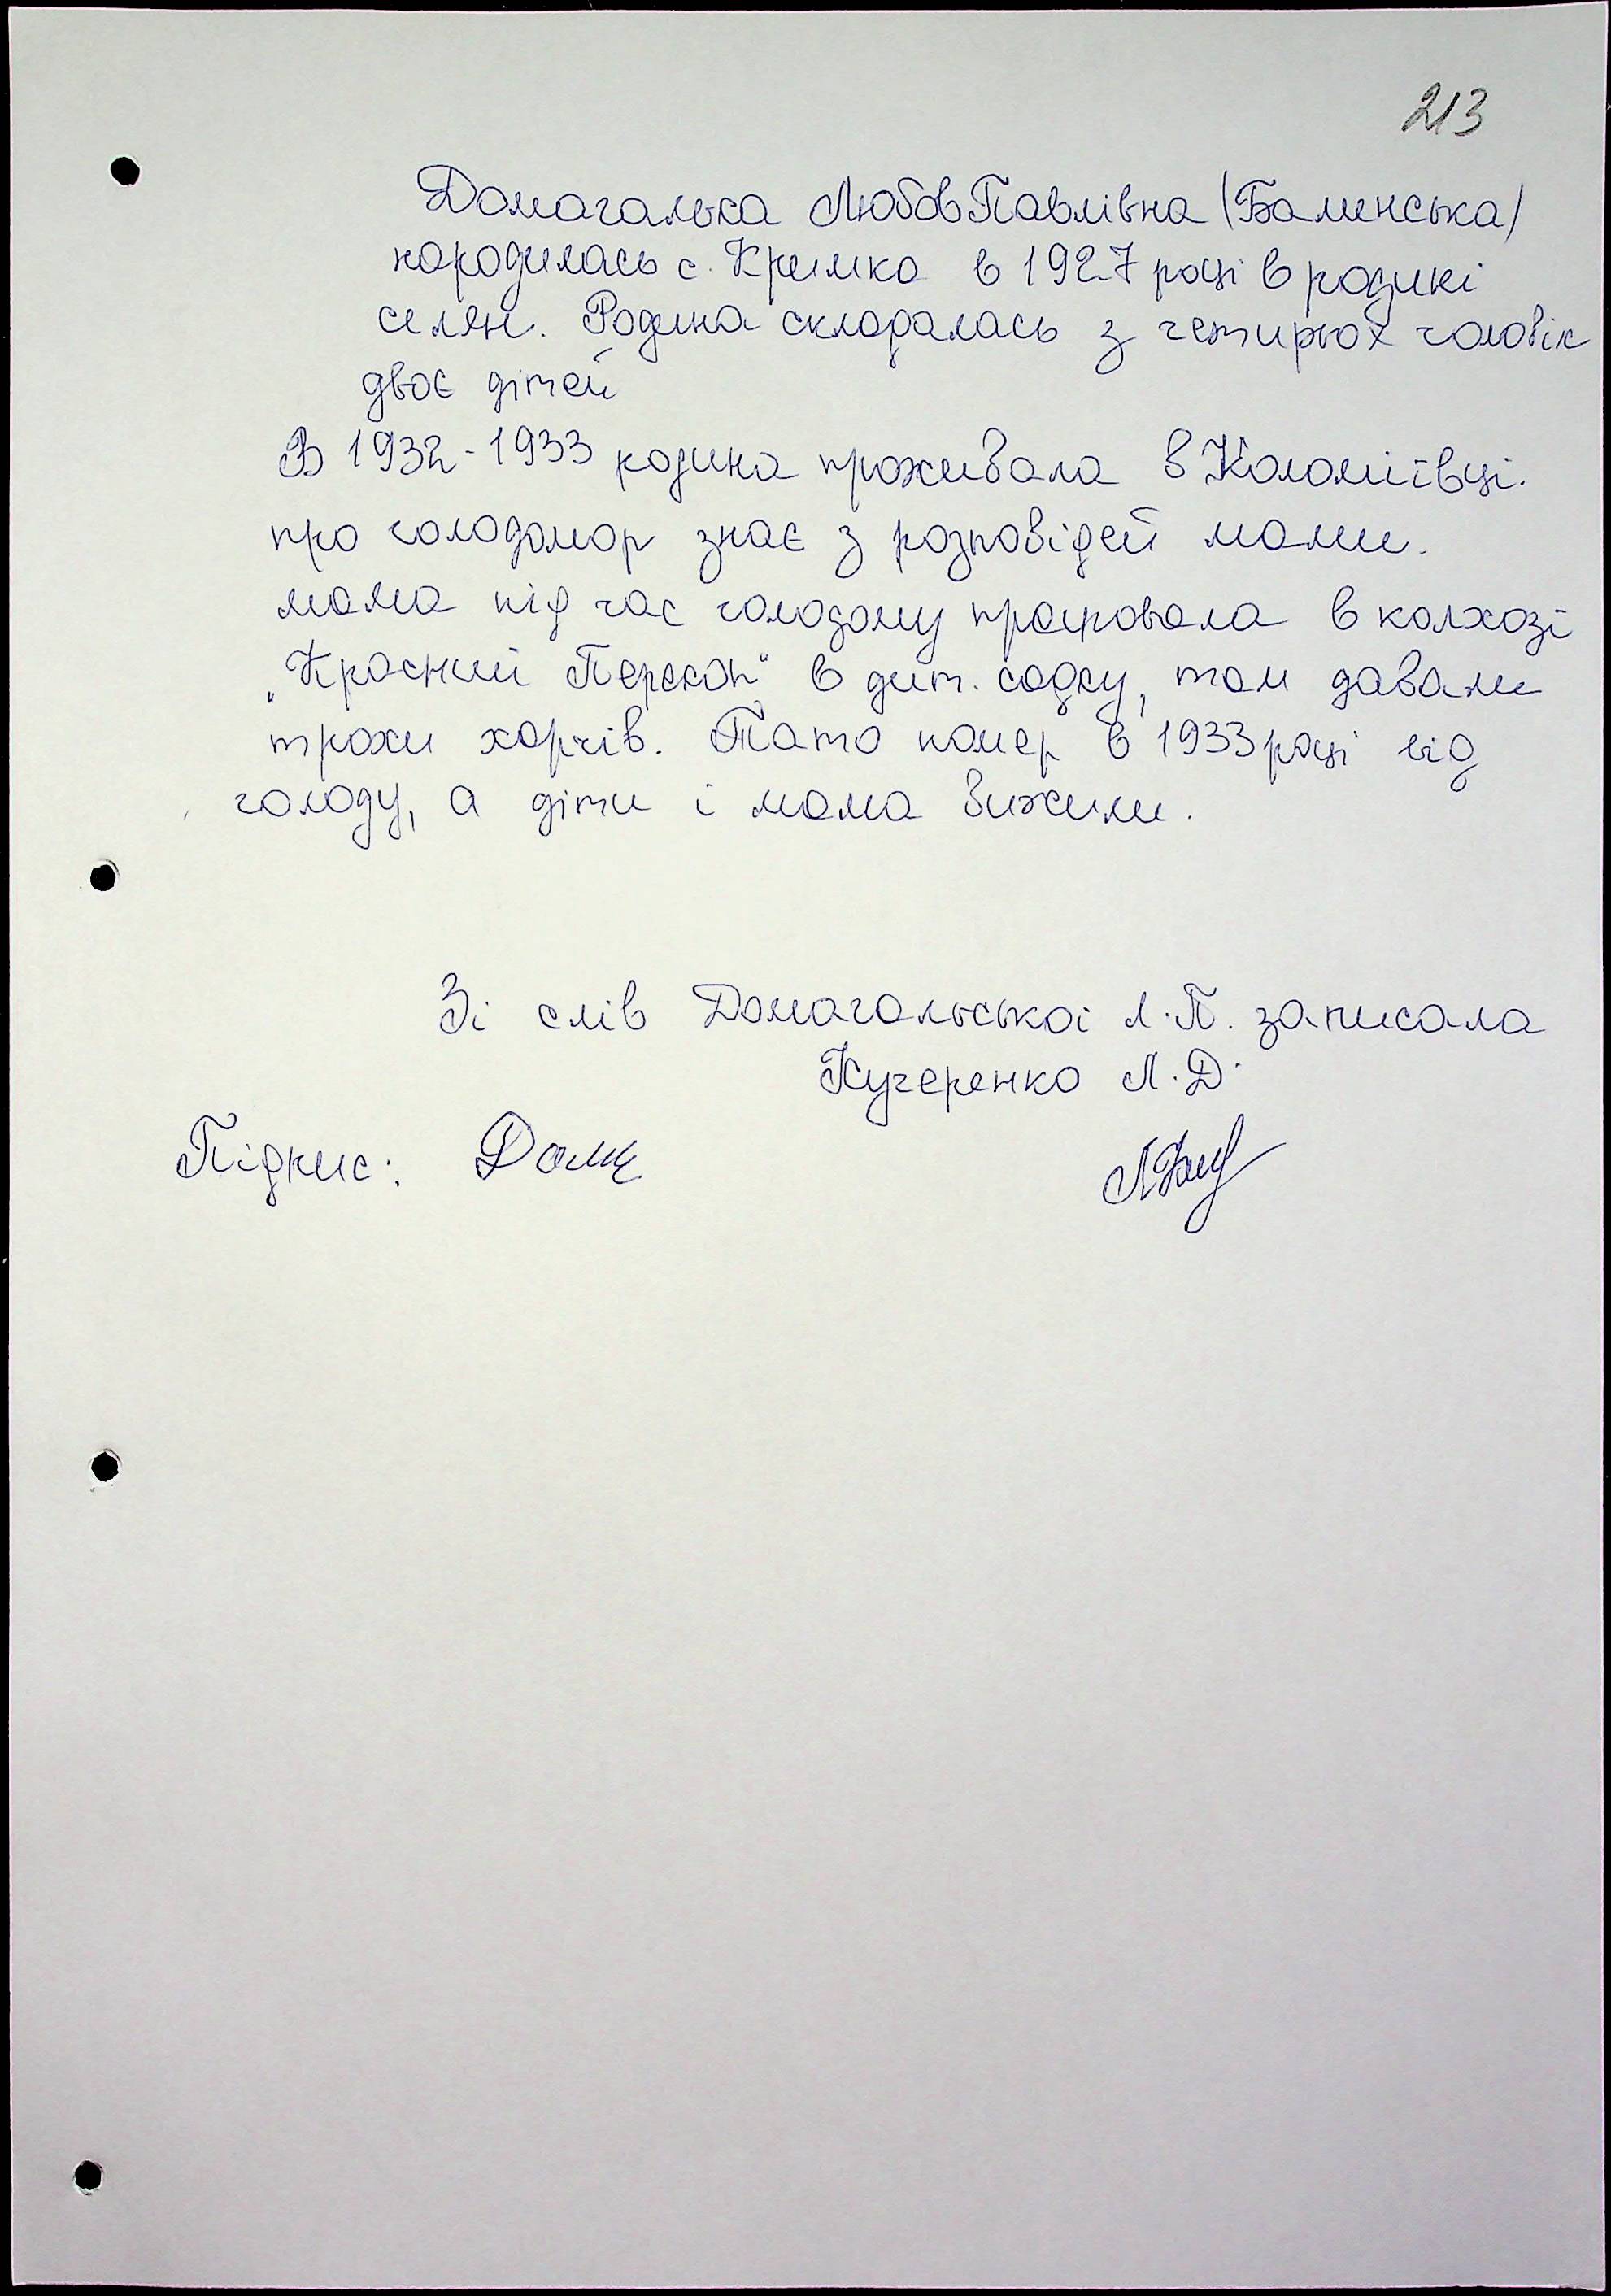 213
Домагалька Любов Павлівна (Баминська)
народилась с. Кримка в 1927 році в родині
селян. Родина складалась з чотирьох чоловік
двоє дітей
В 1932-1933 родина проживала в Коломіївці.
про голодомор знає з розповідей мами.
мама під час голодому працювала в колхозі
„Красний Перекоп" в дит. садку, там давали
трохи харчів. Тато помер в 1933 році від
голоду, а діти і мама вижили.
Зі слів Домагальської Л.П. записала
Кучеренко Л.Д.
Підпис: